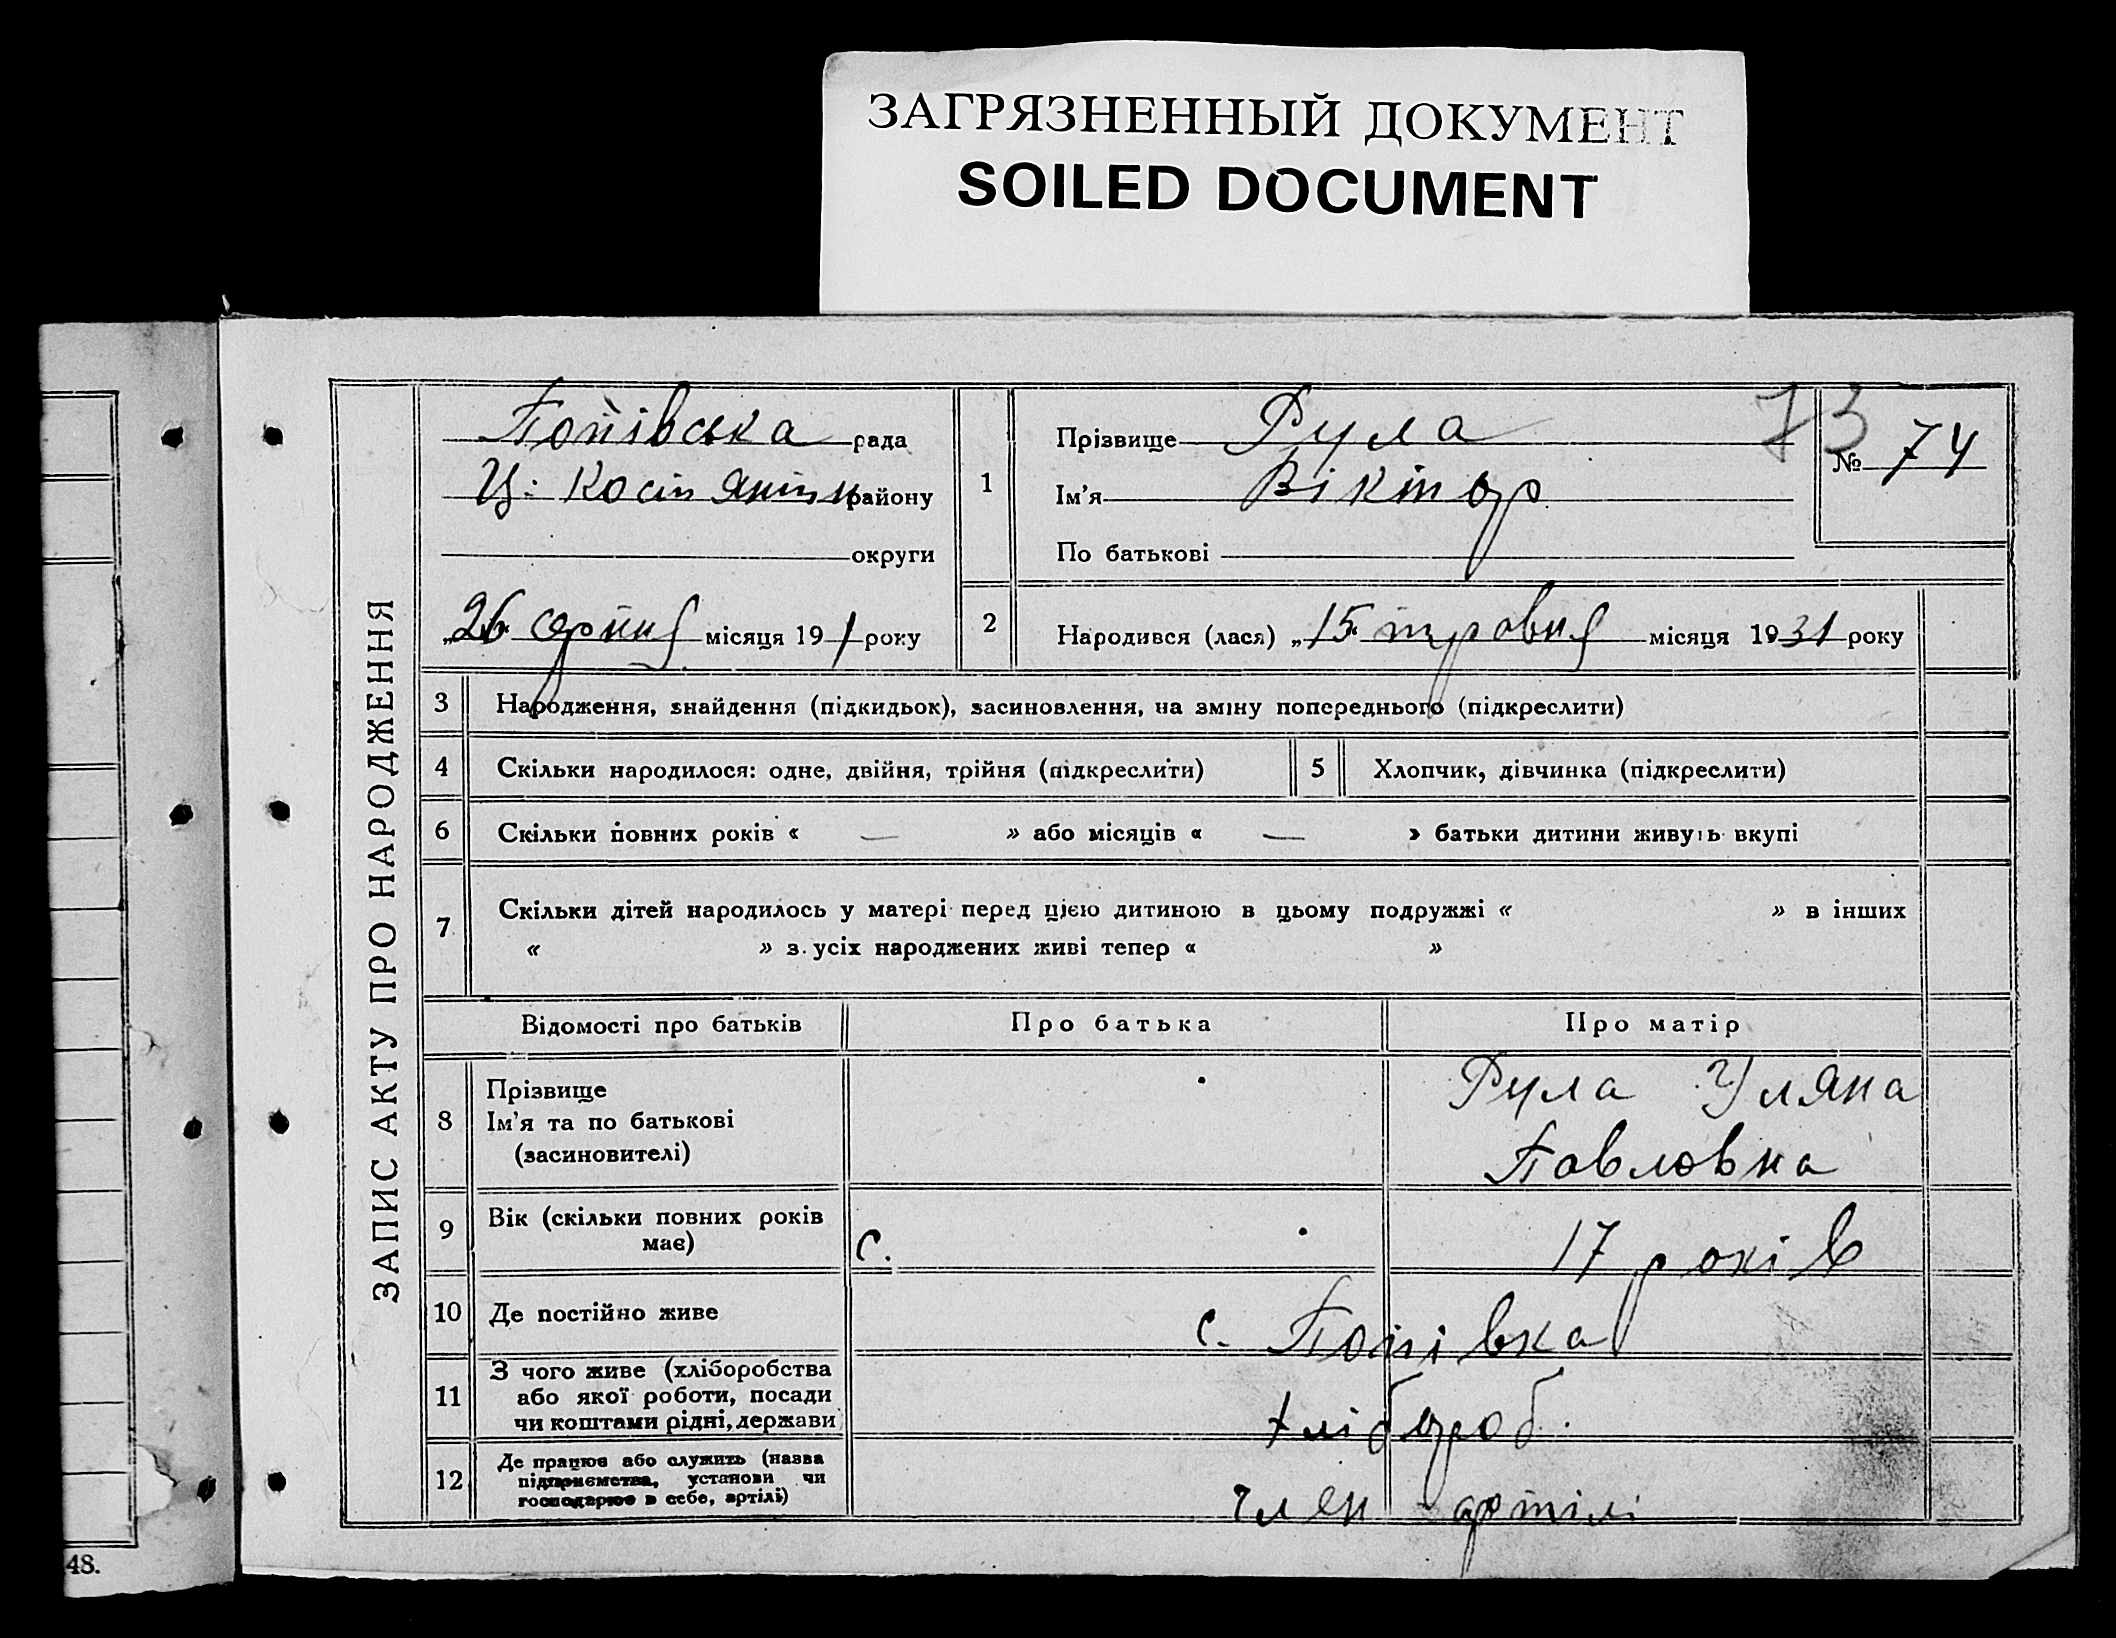 ЗАГРЯЗНЕННЫЙ ДОКУМЕНТ
SOILED DOCUMENT
ЗАПИС АКТУ ПРО НАРОДЖЕННЯ
Попівська рада
району
округи
„26“ серпня місяця 19 1 року
1
Прізвище Рула
Ім'я Віктор
По батькові
73
№ 74
2
Народився (лася) „15“ травня місяця 1931 року
3 Народження, знайдення (підкидьок), засиновлення, на зміну попереднього (підкреслити)
4 Скільки народилося: одне, двійня, трійня (підкреслити) 5 Хлопчик, дівчинка (підкреслити)
6 Скільки повних років « — » або місяців « — » батьки дитини живуть вкупі
7 Скільки дітей народилось у матері перед цією дитиною в цьому подружжі « » в інших
« » з усіх народжених живі тепер « »
Відомості про батьків Про батька Про матір
8 Прізвище
Ім'я та по батькові
(засиновителі)
Рула Уляна
Павловна
9 Вік (скільки повних років
має)
с.
17 років
10 Де постійно живе с. Попівка
11 З чого живе (хліборобства
або якої роботи, посади
чи коштами рідні, держави
хлібороб.
12 Де працює або служить (назва
підприємства, установи чи
господарює в себе, артілі)
член артілі
48.